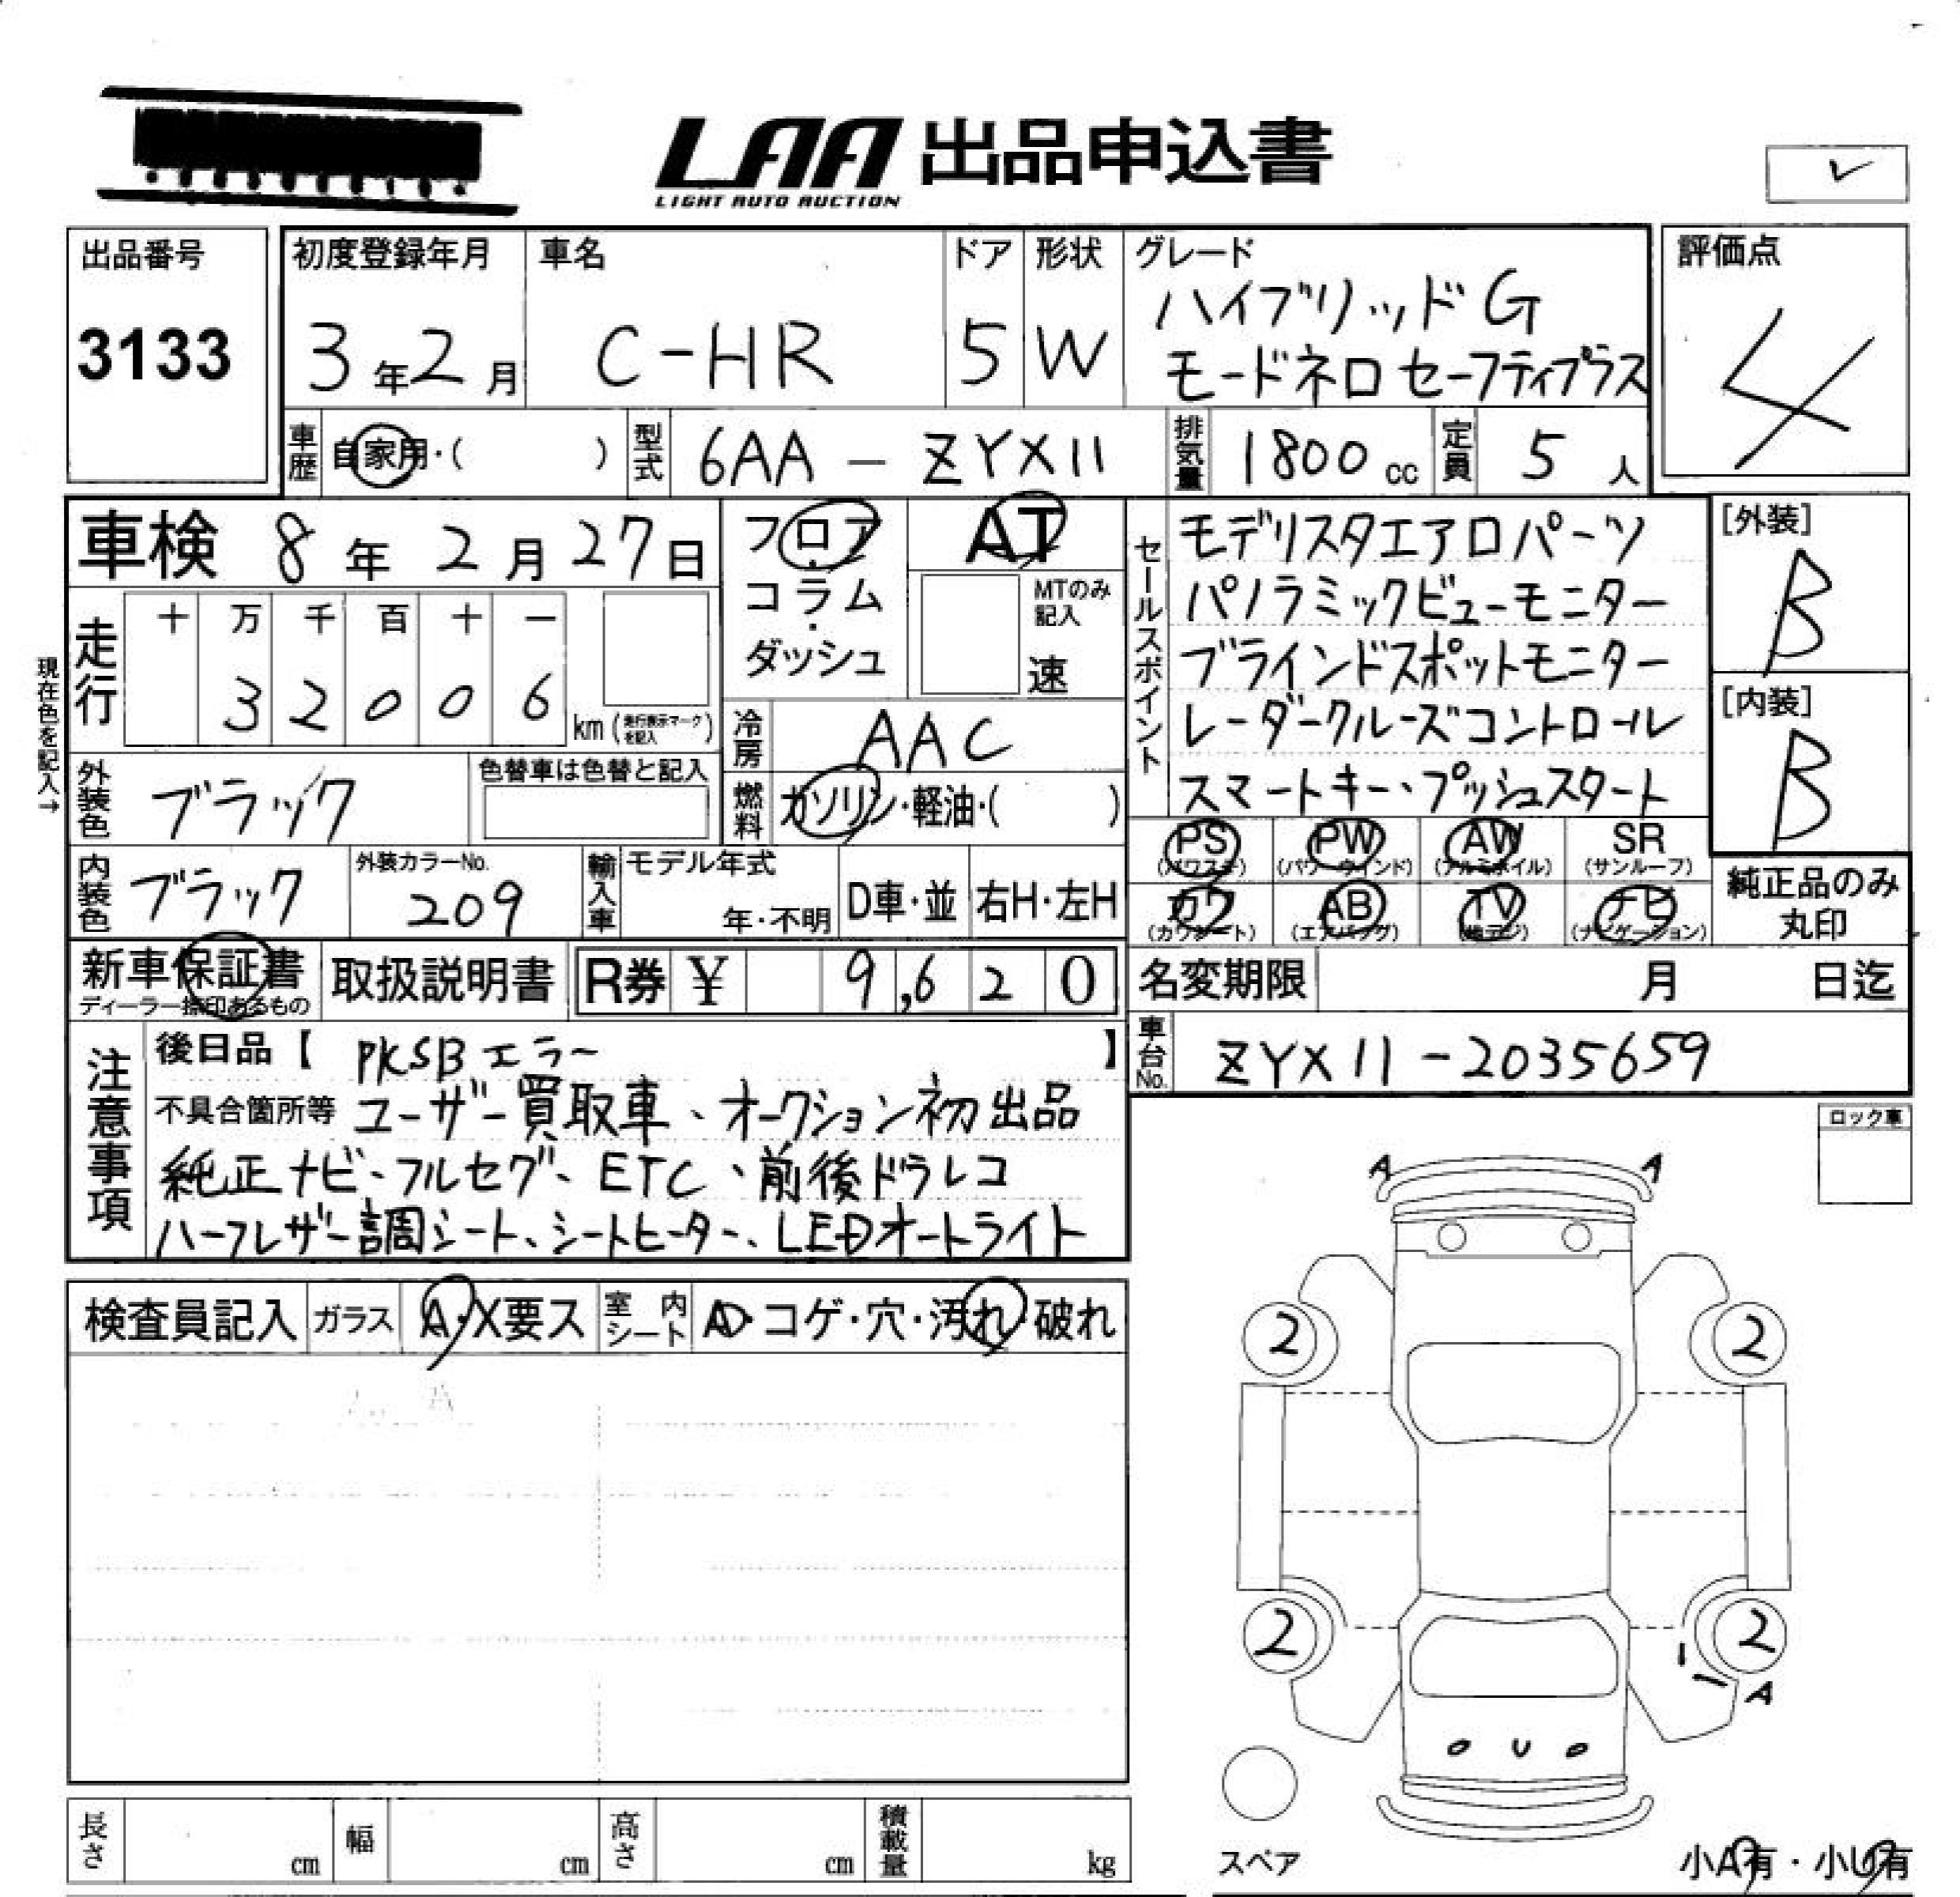 LAA 出品申込書
LIGHT AUTO AUCTION
✓
出品番号
3133
初度登録年月
3年2月
車名
C-HR
ドア
5
形状
W
グレード
ハイブリッドG
モードネロ セーフティプラス
評価点
4
車歴
自家用・( )
型式
6AA - ZYX11
排気量
1800cc
定員
5人
車検 8年2月27日
フロア
・
コラム
・
ダッシュ
AT
MTのみ
記入
速
セールスポイント
モデリスタエアロパーツ
パノラミックビューモニター
ブラインドスポットモニター
レーダークルーズコントロール
スマートキー、プッシュスタート
[外装]
B
[内装]
B
現在色を記入→
走行
十 万 千 百 十 一
3 2 0 0 6
km(走行表示マークを記入)
冷房
AAC
外装色
ブラック
色替車は色替と記入
燃料
ガソリン・軽油・( )
内装色
ブラック
外装カラーNo.
209
輸入車
モデル年式
年・不明
D車・並
右H・左H
PS
(パワステ)
PW
(パワーウインド)
AW
(アルミホイル)
SR
(サンルーフ)
カワ
(カワシート)
AB
(エアバッグ)
TV
(地デジ)
ナビ
(ナビゲーション)
純正品のみ
丸印
新車保証書
ディーラー捺印あるもの
取扱説明書
R券 ¥ 9,620
名変期限 月 日迄
車台No.
ZYX11-2035659
注意事項
後日品【 PKSBエラー 】
不具合箇所等 ユーザー買取車、オークション初出品
純正ナビ、フルセグ、ETC、前後ドラレコ
ハーフレザー調シート、シートヒーター、LEDオートライト
ロック車
検査員記入
ガラス
A・X要ス
室内シート
AD・コゲ・穴・汚れ・破れ
A A
2 2
2 2
A
U
スペア
小A有・小U有
長さ
cm
幅
cm
高さ
cm
積載量
kg